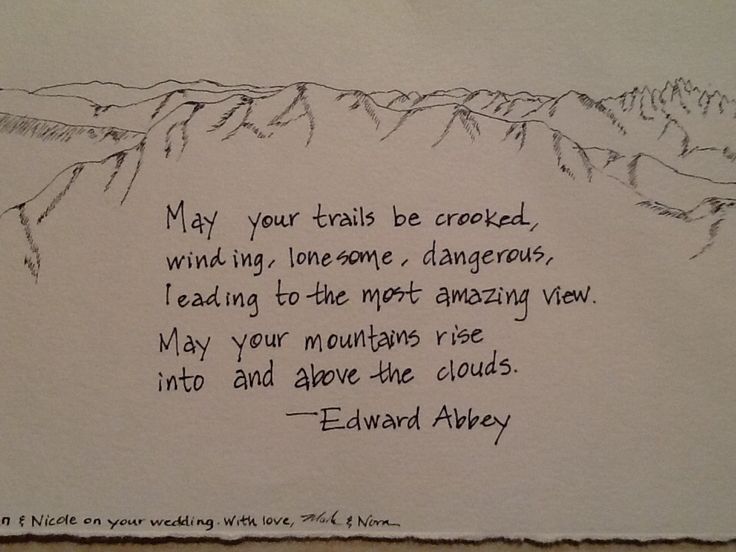 May your trails be crooked,
winding, lonesome, dangerous,
leading to the most amazing view.
May your mountains rise
into and above the clouds.
—Edward Abbey
& Nicole on your wedding. With love, Mark & Nora